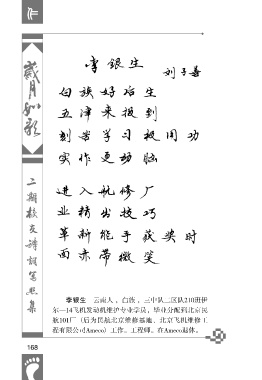 作
岁月如歌
二期校友诗词写照集
李银生
刘子善
白族好后生
五津来报到
刻苦学习极用功
实作更动脑
进入航修厂
业精出技巧
革新能手获奖时
面亦带微笑
李银生 云南人，白族，三中队二区队210班伊
尔—14飞机发动机维护专业学员，毕业分配到北京民
航101厂（后为民航北京维修基地、北京飞机维修工
程有限公司Ameco）工作。工程师。在Ameco退休。
168